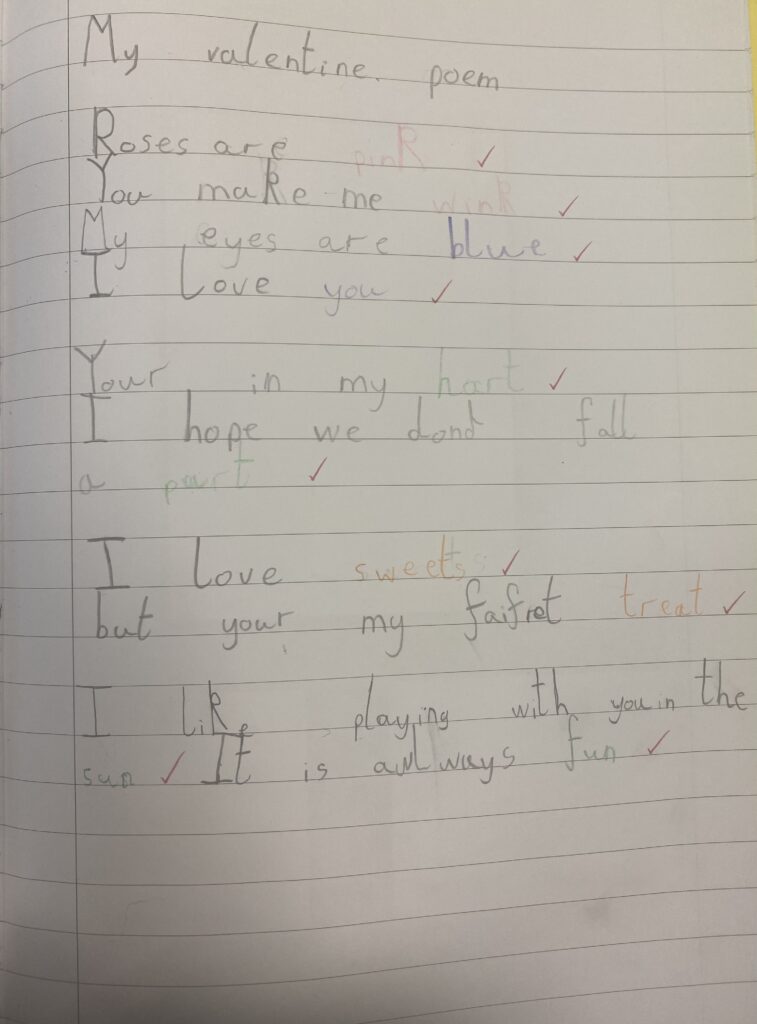 My valentine. poem
Roses are pink ✓
You make me wink ✓
My eyes are blue ✓
I Love you ✓
Your in my hart ✓
I hope we dond fall
a part ✓
I Love sweets ✓
but your my faifret treat ✓
I like playing with you in the
sun ✓ It is always fun ✓